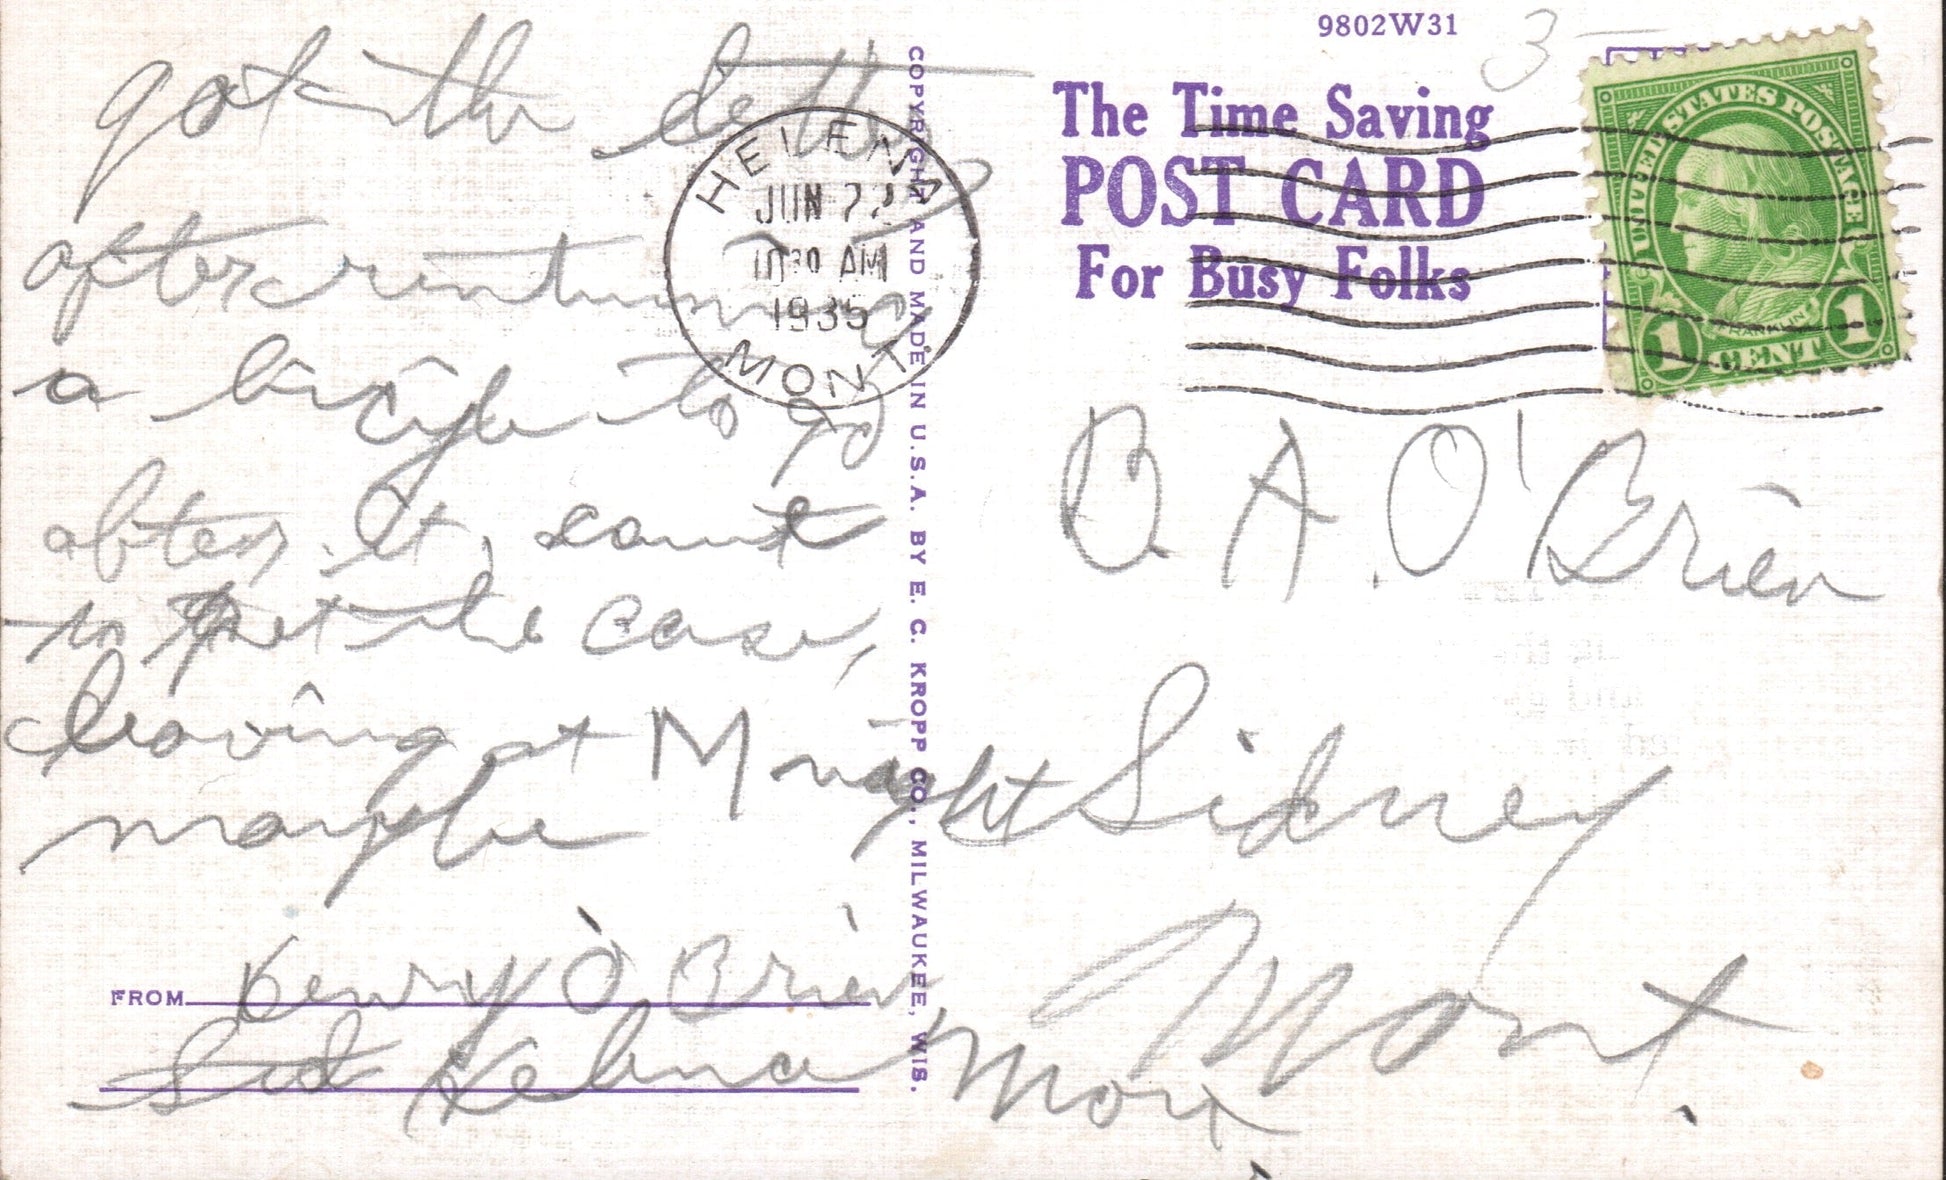 got the letter
after renting
a bicycle to go
after it, cannt
to get the case,
leaving at M night
maybe
FROM Henry O'Brien
Helena Mont
COPYRIGHT AND MADE IN U.S.A. BY E. C. KROPP CO., MILWAUKEE, WIS.
HELENA
JUN 22
10 30 AM
1935
MONT.
9802W31
3—
The Time Saving
POST CARD
For Busy Folks
UNITED STATES POSTAGE
FRANKLIN
1 CENT 1
A. O'Brien
Sidney
Mont.